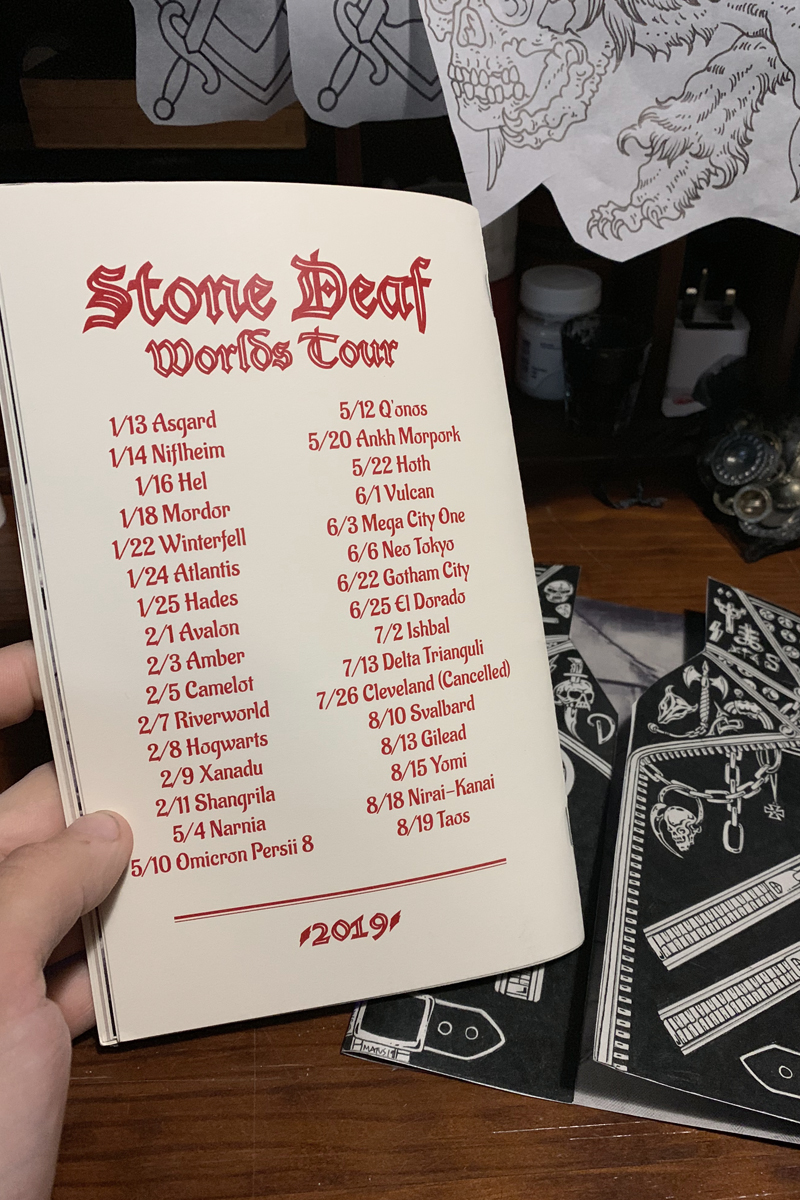 Stone Deaf
Worlds Tour
1/13 Asgard
1/14 Niflheim
1/16 Hel
1/18 Mordor
1/22 Winterfell
1/24 Atlantis
1/25 Hades
2/1 Avalon
2/3 Amber
2/5 Camelot
2/7 Riverworld
2/8 Hogwarts
2/9 Xanadu
2/11 Shangrila
5/4 Narnia
5/10 Omicron Persii 8
5/12 Q'onos
5/20 Ankh Morpork
5/22 Hoth
6/1 Vulcan
6/3 Mega City One
6/6 Neo Tokyo
6/22 Gotham City
6/25 El Dorado
7/2 Ishbal
7/13 Delta Trianguli
7/26 Cleveland (Cancelled)
8/10 Svalbard
8/13 Gilead
8/15 Yomi
8/18 Nirai-Kanai
8/19 Taos
2019